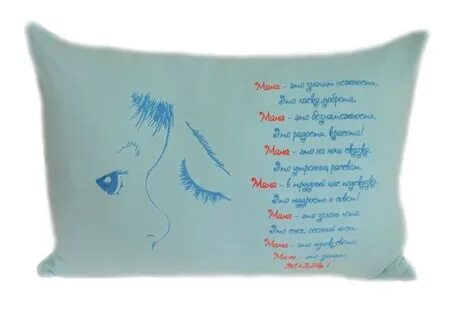 Мама - это значит нежность,
Это ласка, доброта,
Мама - это безмятежность,
Это радость, красота!
Мама - это на ночь сказка,
Это утренний рассвет,
Мама - в трудный час подсказка,
Это мудрость и совет!
Мама - это зелень лета,
Это снег, осенний лист,
Мама - это лучик света,
Мама - это значит
ЖИЗНЬ!